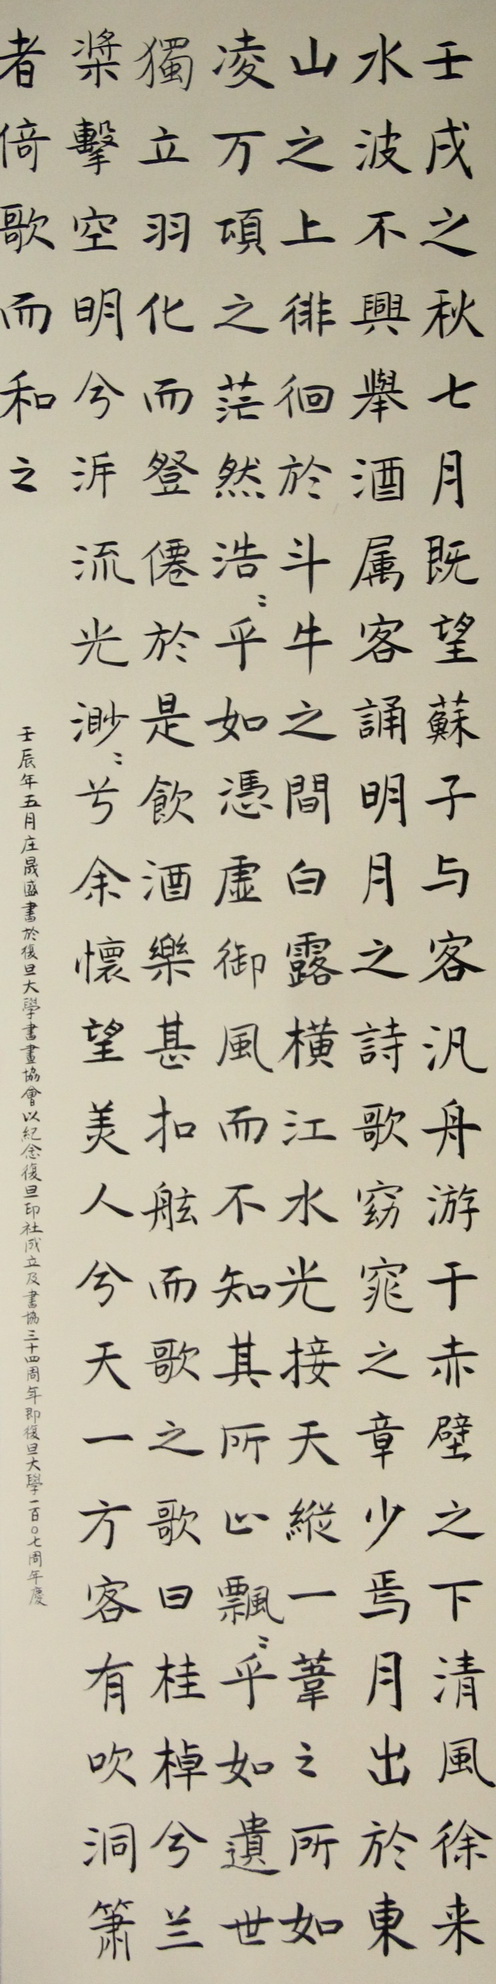 壬戌之秋七月既望蘇子与客汎舟游于赤壁之下清風徐来
水波不興舉酒属客誦明月之詩歌窈窕之章少焉月出於東
山之上徘徊於斗牛之間白露横江水光接天縱一葦之所如
凌万頃之茫然浩〻乎如憑虚御風而不知其所止飄〻乎如遺世
獨立羽化而登僊於是飲酒樂甚扣舷而歌之歌曰桂棹兮兰
槳擊空明兮泝流光渺〻兮余懷望美人兮天一方客有吹洞箫
者倚歌而和之
壬辰年五月庄晟盛書於復旦大學書畫協會以紀念復旦印社成立及書協三十四周年即復旦大學一百〇七周年慶